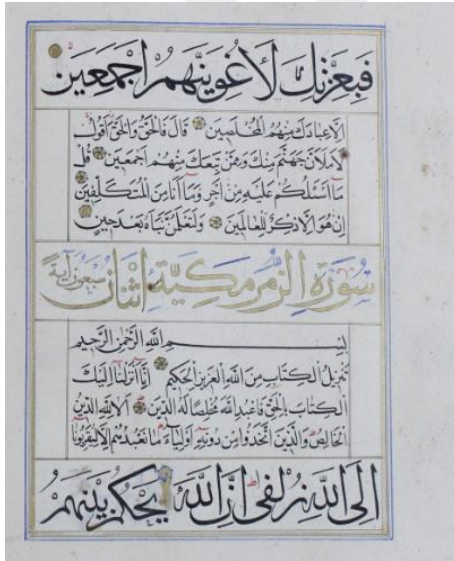 فبعزتك لأغوينهم أجمعين
إلا عبادك منهم المخلصين قال فالحق والحق أقول
لأملأن جهنم منك وممن تبعك منهم أجمعين قل
ما أسئلكم عليه من أجر وما أنا من المتكلفين
إن هو إلا ذكر للعالمين ولتعلمن نبأه بعد حين
سورة الزمر مكية اثنان سبعون آية
بسم الله الرحمن الرحيم
تنزيل الكتاب من الله العزيز الحكيم إنا أنزلنا إليك
الكتاب بالحق فاعبد الله مخلصا له الدين ألا لله الدين
الخالص والذين اتخذوا من دونه أولياء ما نعبدهم إلا ليقربونا
إلى الله زلفى إن الله يحكم بينهم